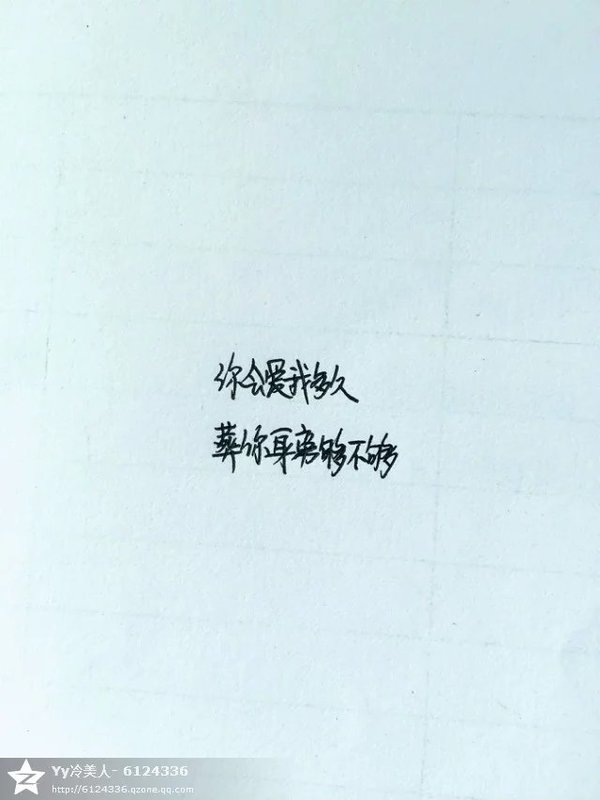 你会爱我多久
葬你身旁够不够
Yy冷美人- 6124336
http://6124336.qzone.qq.com